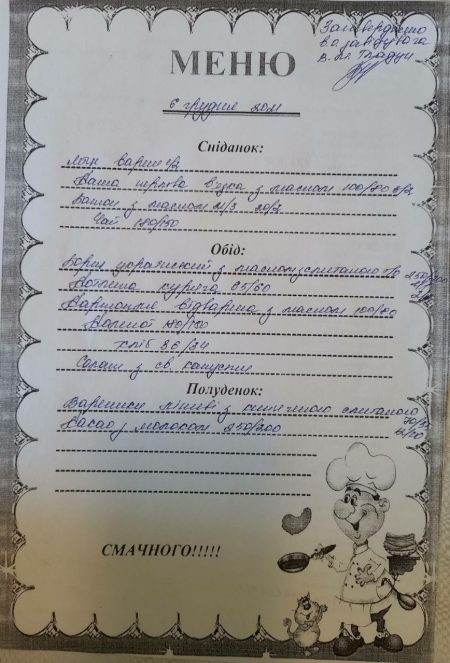 Затверджено
в.о завідувача
МЕНЮ
6 грудня 2021
Сніданок:
Яйце варене 1/2
Каша в'язка з маслом 100/80
Батон з маслом 20/7
Чай 180/150
Обід:
Борщ український з маслом, сметаною 250/200
Котлета куряча 65/60
Картопля відварна з маслом 100/80
Компот 180/150
хліб 36/24
Салат з св. капусти
Полуденок:
Вареники ліниві з сметаною
Какао з молоком 250/200
СМАЧНОГО!!!!!